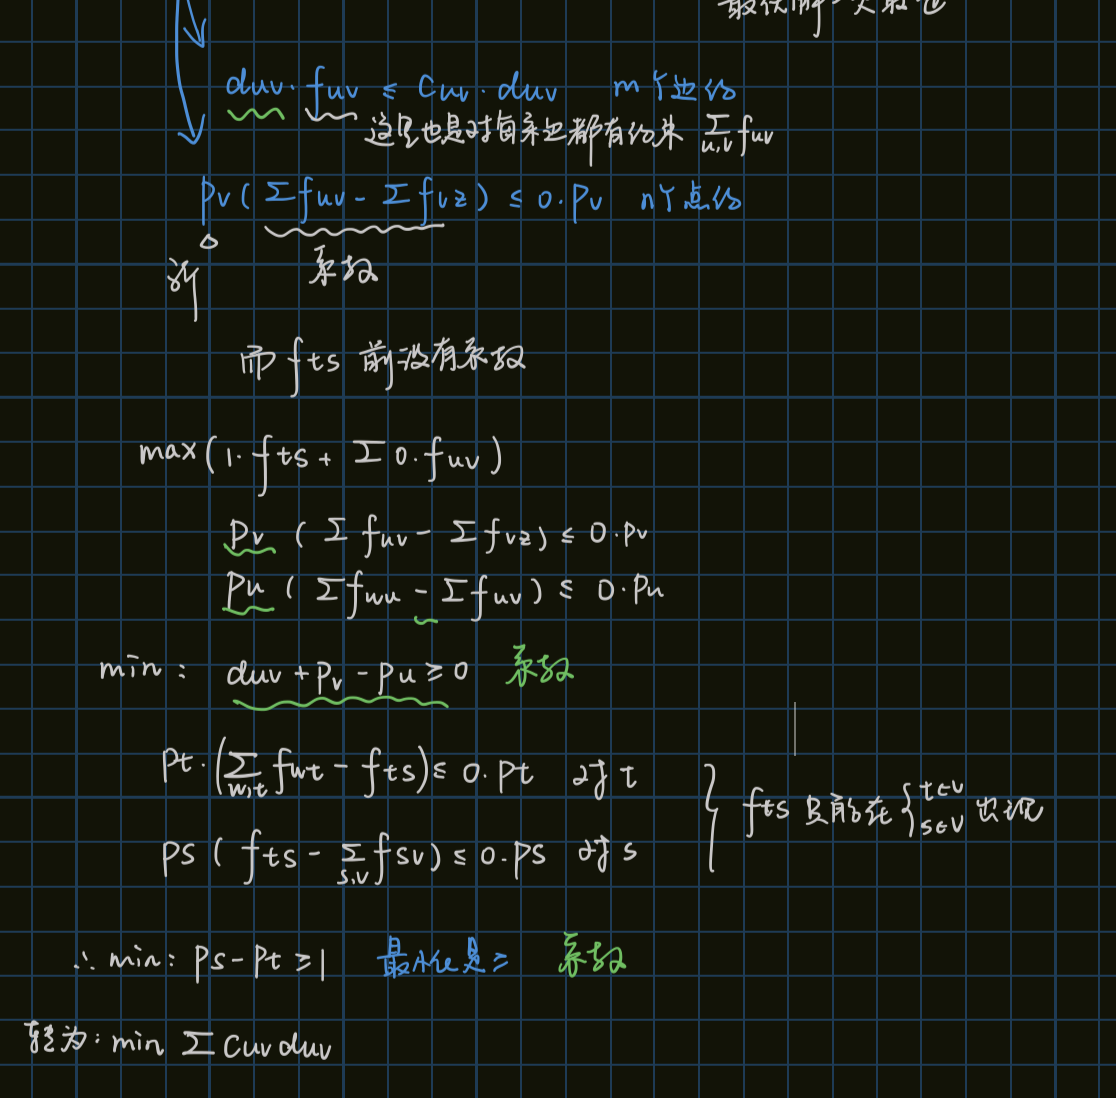 duv · fuv ≤ Cuv · duv m个边约
这里也是对每条边都有约束 Σ u,v fuv
Pv ( Σ fuv - Σ fvz ) ≤ 0 · Pv n个点约
系数
而 fts 前没有系数
max ( 1 · fts + Σ 0 · fuv )
Pv ( Σ fuv - Σ fvz ) ≤ 0 · Pv
Pu ( Σ fwu - Σ fuv ) ≤ 0 · Pu
min : duv + Pv - Pu ≥ 0 系数
Pt · ( Σ w,t fwt - fts ) ≤ 0 · Pt 对于 t
fts 只能在 { t∈V s∈V 出现
Ps ( fts - Σ s,v fsv ) ≤ 0 · Ps 对于 s
∴ min : Ps - Pt ≥ 1 是 ≥ 系数
转为 : min Σ Cuv duv